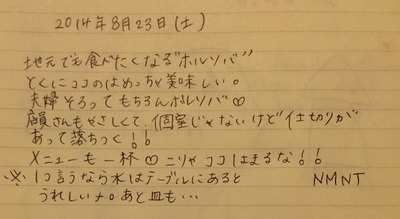 2014年8月23日(土)
地元でも食べたくなる"ホルソバ"
とくにココのはめっちゃ美味しい。
夫婦そろってもちろんホルソバ♡
店員さんもやさしくて、個室じゃないけど仕切りが
あって落ちつく!!
メニューも一杯♡ニリャココしはまるな!!
※1コ言うなら水はテーブルにあると NMNT
うれしいナ。あと皿も…